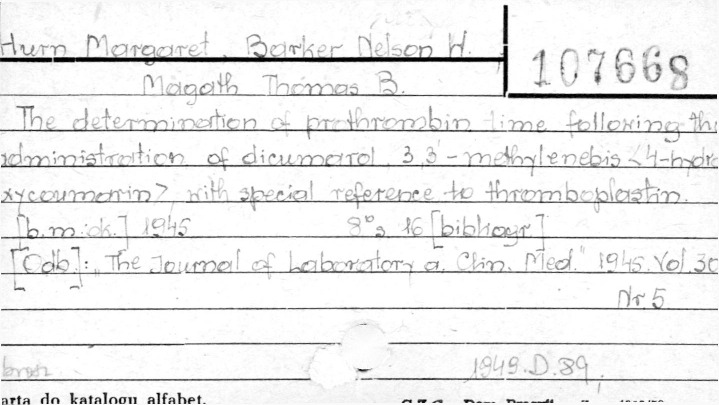 Hurn Margaret, Barker Nelson W.
107668
Magath Thomas B.
The determination of prothrombin time following the
administration of dicumarol 3,3'-methylenebis <4-hydro
xycoumarin> with special reference to thromboplastin.
[b.m.;ok.] 1945 8°s. 16 [bibliogr]
[Odb.]: "The Journal of Laboratory a. Clin. Med." 1945. Vol 30
Nr 5
brosz 1949.D.89.
arta do katalogu alfabet.